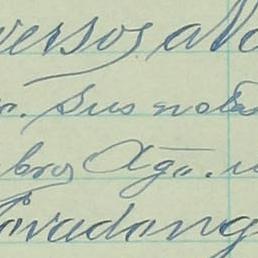 versos a No
r. Sus nota
bros Ago. u
Covadong